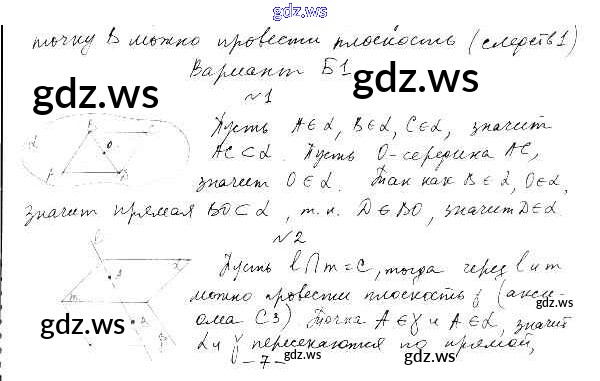 gdz.ws
точку В можно провести плоскость (следств1)
Вариант Б1
gdz.ws
gdz.ws
№1
Пусть A∈α, B∈α, C∈α, значит
AC⊂α. Пусть O-середина AC,
значит O∈α. Так как B∈α, O∈α,
значит прямая BO⊂α, т.к. D∈BO, значит D∈α.
gdz.ws
gdz.ws
№2
Пусть l∩m=C, тогда через l и m
можно провести плоскость γ (акси-
ома С3). Точка A∈γ и A∈α, значит
α и γ пересекаются по прямой,
gdz.ws
gdz.ws
gdz.ws
gdz.ws
gdz.ws
-7-
gdz.ws